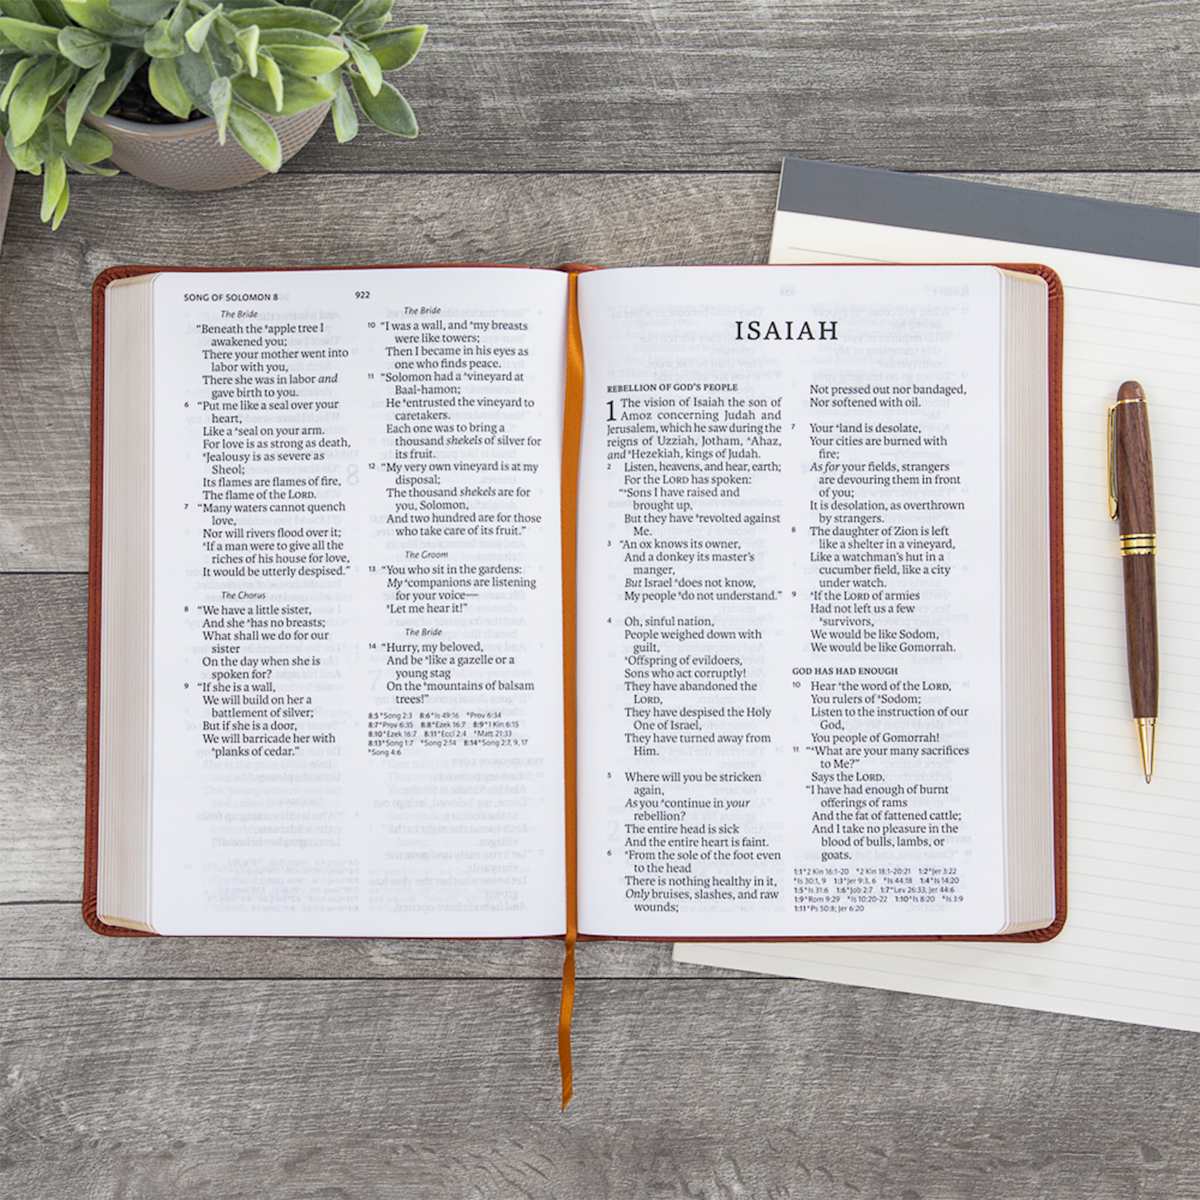 SONG OF SOLOMON 8
922
The Bride
“Beneath the *apple tree I
awakened you;
There your mother went into
labor with you,
There she was in labor and
gave birth to you.
6 “Put me like a seal over your
heart,
Like a *seal on your arm.
For love is as strong as death,
*Jealousy is as severe as
Sheol;
Its flames are flames of fire,
The flame of the LORD.
7 “Many waters cannot quench
love,
Nor will rivers flood over it;
*If a man were to give all the
riches of his house for love,
It would be utterly despised.”
The Chorus
8 “We have a little sister,
And she *has no breasts;
What shall we do for our
sister
On the day when she is
spoken for?
9 “If she is a wall,
We will build on her a
battlement of silver;
But if she is a door,
We will barricade her with
*planks of cedar.”
The Bride
10 “I was a wall, and *my breasts
were like towers;
Then I became in his eyes as
one who finds peace.
11 “Solomon had a *vineyard at
Baal-hamon;
He *entrusted the vineyard to
caretakers.
Each one was to bring a
thousand shekels of silver for
its fruit.
12 “My very own vineyard is at my
disposal;
The thousand shekels are for
you, Solomon,
And two hundred are for those
who take care of its fruit.”
The Groom
13 “You who sit in the gardens:
My *companions are listening
for your voice—
*Let me hear it!”
The Bride
14 “Hurry, my beloved,
And be *like a gazelle or a
young stag
On the *mountains of balsam
trees!”
8:5 *Song 2:3 8:6 *Is 49:16 *Prov 6:34
8:7 *Prov 6:35 8:8 *Ezek 16:7 8:9 *1 Kin 6:15
8:10 *Ezek 16:7 8:11 *Eccl 2:4 *Matt 21:33
8:13 *Song 1:7 *Song 2:14 8:14 *Song 2:7, 9, 17
*Song 4:6
ISAIAH
REBELLION OF GOD’S PEOPLE
1 The vision of Isaiah the son of
Amoz concerning Judah and
Jerusalem, which he saw during the
reigns of Uzziah, Jotham, *Ahaz,
and *Hezekiah, kings of Judah.
2 Listen, heavens, and hear, earth;
For the LORD has spoken:
“*Sons I have raised and
brought up,
But they have *revolted against
Me.
3 “An ox knows its owner,
And a donkey its master’s
manger,
But Israel *does not know,
My people *do not understand.”
4 Oh, sinful nation,
People weighed down with
guilt,
*Offspring of evildoers,
Sons who act corruptly!
They have abandoned the
LORD,
They have despised the Holy
One of Israel,
They have turned away from
Him.
5 Where will you be stricken
again,
As you *continue in your
rebellion?
The entire head is sick
And the entire heart is faint.
6 *From the sole of the foot even
to the head
There is nothing healthy in it,
Only bruises, slashes, and raw
wounds;
Not pressed out nor bandaged,
Nor softened with oil.
7 Your *land is desolate,
Your cities are burned with
fire;
As for your fields, strangers
are devouring them in front
of you;
It is desolation, as overthrown
by strangers.
8 The daughter of Zion is left
like a shelter in a vineyard,
Like a watchman’s hut in a
cucumber field, like a city
under watch.
9 *If the LORD of armies
Had not left us a few
*survivors,
We would be like Sodom,
We would be like Gomorrah.
GOD HAS HAD ENOUGH
10 Hear *the word of the LORD,
You rulers of *Sodom;
Listen to the instruction of our
God,
You people of Gomorrah!
11 “*What are your many sacrifices
to Me?”
Says the LORD.
“I have had enough of burnt
offerings of rams
And the fat of fattened cattle;
And I take no pleasure in the
blood of bulls, lambs, or
goats.
1:1 *2 Kin 16:1-20 *2 Kin 18:1-20:21 1:2 *Jer 3:22
*Is 30:1, 9 1:3 *Jer 9:3, 6 *Is 44:18 1:4 *Is 14:20
1:5 *Is 31:6 1:6 *Job 2:7 1:7 *Lev 26:33; Jer 44:6
1:9 *Rom 9:29 *Is 10:20-22 1:10 *Is 8:20 *Is 3:9
1:11 *Ps 50:8; Jer 6:20